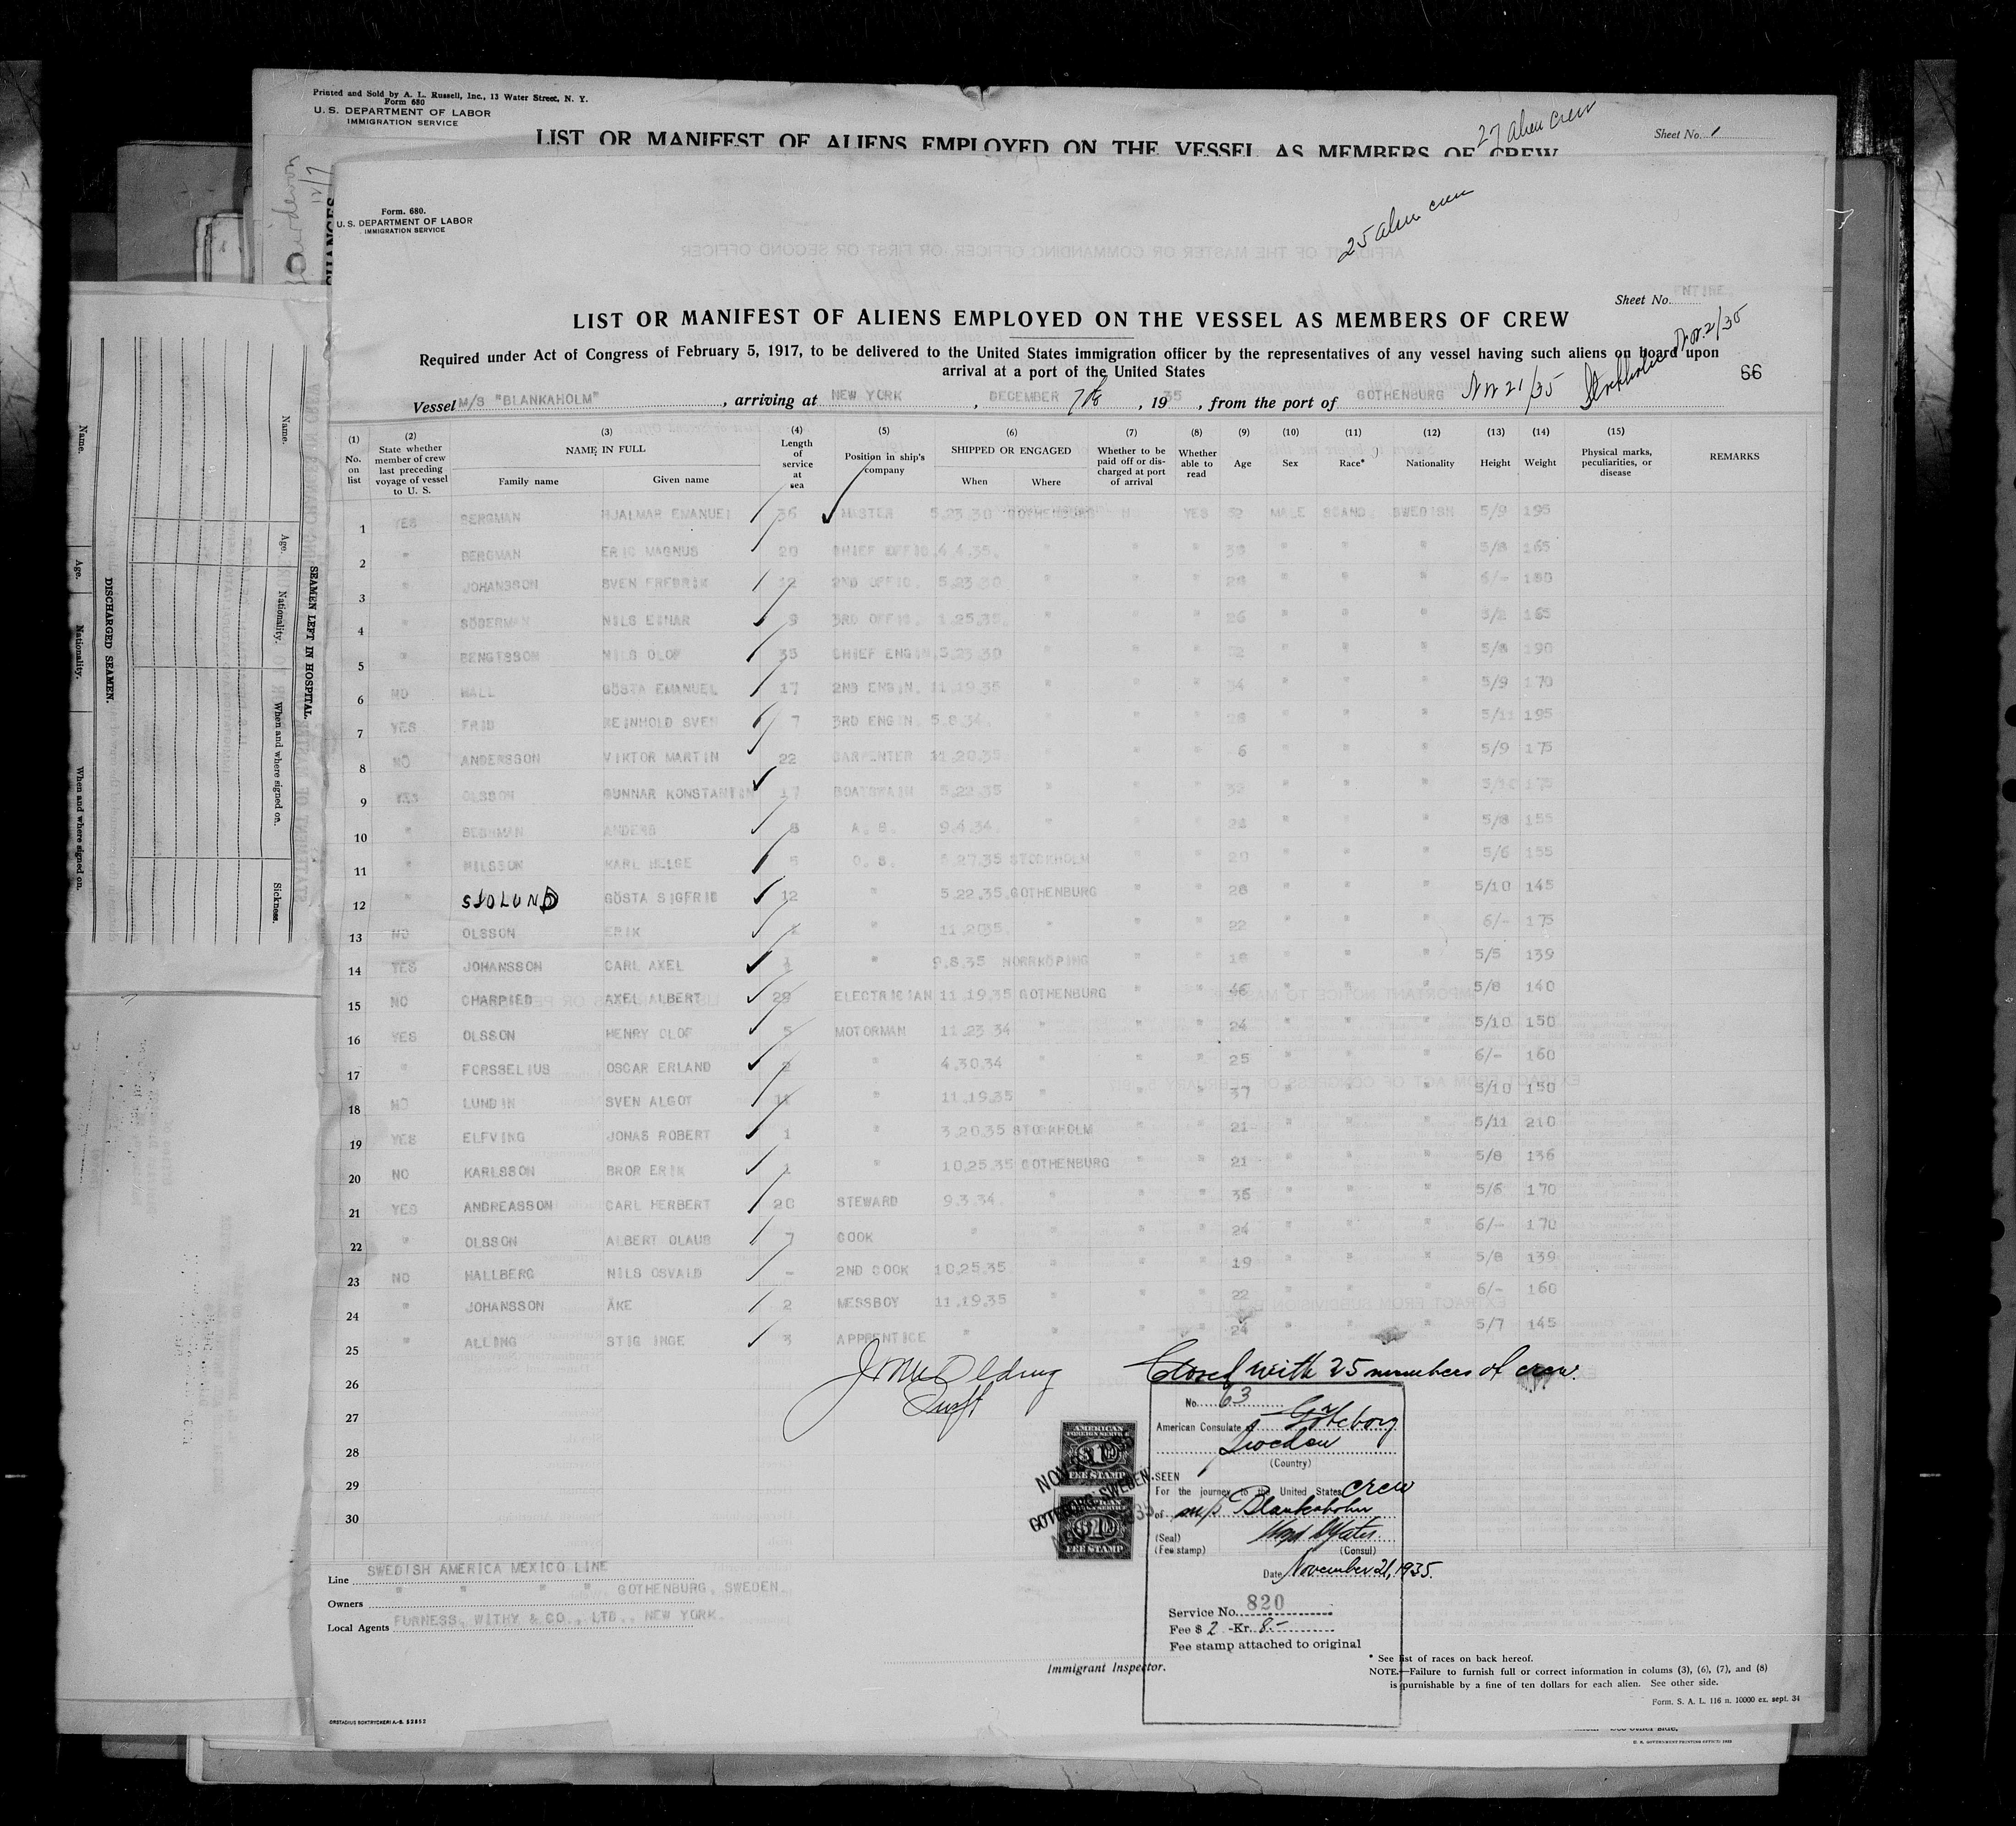 Printed and Sold by A. L. Russell, Inc., 13 Water Street, N. Y.
Form 680
U. S. DEPARTMENT OF LABOR
IMMIGRATION SERVICE
27 alien crew
Sheet No. 1
LIST OR MANIFEST OF ALIENS EMPLOYED ON THE VESSEL AS MEMBERS OF CREW
Form. 680.
U. S. DEPARTMENT OF LABOR
IMMIGRATION SERVICE
25 alien crew
Sheet No. ENTIRE
LIST OR MANIFEST OF ALIENS EMPLOYED ON THE VESSEL AS MEMBERS OF CREW
Required under Act of Congress of February 5, 1917, to be delivered to the United States immigration officer by the representatives of any vessel having such aliens on board upon
arrival at a port of the United States
66
Vessel M/S "BLANKAHOLM", arriving at NEW YORK, DECEMBER 7th, 1935, from the port of GOTHENBURG Nov 21/35
(1) No. on list
(2) State whether member of crew last preceding voyage of vessel to U. S.
(3) NAME IN FULL Family name Given name
(4) Length of service at sea
(5) Position in ship's company
(6) SHIPPED OR ENGAGED When Where
(7) Whether to be paid off or discharged at port of arrival
(8) Whether able to read
(9) Age
(10) Sex
(11) Race*
(12) Nationality
(13) Height
(14) Weight
(15) Physical marks, peculiarities, or disease
REMARKS
1 YES BERGMAN HJALMAR EMANUEL 36 MASTER 5.23.30 GOTHENBURG NO YES 52 MALE SCAND. SWEDISH 5/9 195
2 " BERGMAN ERIC MAGNUS 20 CHIEF OFFIC. 4.4.35. " " " " " " 5/8 165
3 " JOHANSSON SVEN FREDRIK 12 2ND OFFIC. 5.23.30 " " " " " " 6/- 180
4 " SÖDERMAN NILS EINAR 9 3RD OFFIC. 1.25.35. " " " 26 " " " 165
5 " BENGTSSON NILS OLOF 35 CHIEF ENGIN. 5.23.30 " " " 52 " " " 5/8 190
6 NO HALL GÖSTA EMANUEL 17 2ND ENGIN. 11.19.35 " " " 34 " " " 5/9 170
7 YES FRID REINHOLD SVEN 7 3RD ENGIN. 5.8.34. " " " " " " 5/11 195
8 NO ANDERSSON VIKTOR MARTIN 22 CARPENTER 11.20.35 " " " 6 " " " 5/9 175
9 YES OLSSON GUNNAR KONSTANTIN 17 BOATSWAIN 5.22.35 " " " " " " 5/10 175
10 " ANDERS 8 A. B. 9.4.34. " " " " " " 5/8 155
11 " NILSSON KARL HELGE 5 O. S. 27.35 STOCKHOLM " " 20 " " " 5/6 155
12 " SJOLUND GÖSTA SIGFRID 12 " 5.22.35. GOTHENBURG " " 26 " " " 5/10 145
13 NO OLSSON ERIK " 11.20.35. " " " 22 " " " 6/- 175
14 YES JOHANSSON CARL AXEL " 9.8.35 NORRKÖPING " " 18 " " " 5/5 139
15 NO CHARPIED AXEL ALBERT 29 ELECTRICIAN 11.19.35 GOTHENBURG " " 46 " " " 5/8 140
16 YES OLSSON HENRY OLOF 5 MOTORMAN 11.23 34 " " " 24 " " " 5/10 150
17 " FORSSELIUS OSCAR ERLAND 2 " 4.30.34 " " " 25 " " " 6/- 160
18 NO LUNDIN SVEN ALGOT " 11.19.35 " " " 37 " " " 5/10 150
19 YES ELFVING JONAS ROBERT 1 " 3.20.35 STOCKHOLM " " 21 " " " 5/11 210
20 NO KARLSSON BROR ERIK 1 " 10.25.35 GOTHENBURG " " 21 " " " 5/8 136
21 YES ANDREASSON CARL HERBERT 20 STEWARD 9.3.34. " " " 35 " " " 5/6 170
22 " OLSSON ALBERT OLAUS 7 COOK " " " " 24 " " " 6/- 170
23 NO HALLBERG NILS OSVALD - 2ND COOK 10.25.35 " " " 19 " " " 5/8 139
24 " JOHANSSON ÅKE 2 MESSBOY 11.19.35 " " " 22 " " " 6/- 160
25 " ALLING STIG INGE 3 APPRENTICE " " " " 24 " " " 5/7 145
26
27
28
29
30
Closed with 25 members of crew.
No. 63
American Consulate Göteborg
Sweden
(Country)
SEEN
For the journey to the United States crew
of m/s Blankaholm
(Seal)
(Fee stamp)
(Consul)
Date November 21, 1935.
Service No. 820
Fee $ 2 -Kr. 8.-
Fee stamp attached to original
AMERICAN
FOREIGN SERVICE
$1.00
FEE STAMP
GOTEBORG, SWEDEN.
$1.00
FEE STAMP
Line SWEDISH AMERICA MEXICO LINE
Owners " " " " GOTHENBURG, SWEDEN.
Local Agents FURNESS, WITHY & CO., LTD., NEW YORK.
Immigrant Inspector.
* See list of races on back hereof.
NOTE.—Failure to furnish full or correct information in colums (3), (6), (7), and (8)
is purnishable by a fine of ten dollars for each alien. See other side.
Form. S. A. L. 116 n. 10000 ex. sept. 34
ORSTADIUS BOKTRYCKERI A.-B. 53852
U. S. GOVERNMENT PRINTING OFFICE
SEAMEN LEFT IN HOSPITAL.
Name.
Age.
Nationality.
When and where signed on.
Sickness.
DISCHARGED SEAMEN.
Name.
Age.
Nationality.
When and where signed on.